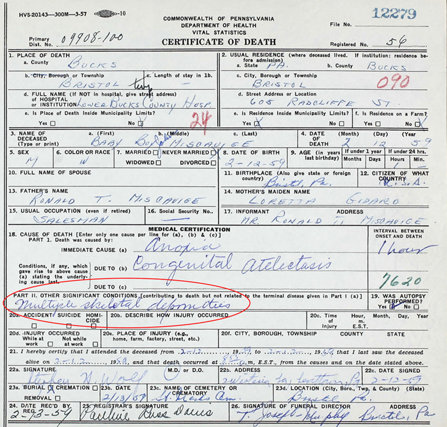 HVS-20143—300M—3-57 10
COMMONWEALTH OF PENNSYLVANIA
DEPARTMENT OF HEALTH
VITAL STATISTICS
File No. 12279
Primary Dist. No. 09908-100
CERTIFICATE OF DEATH
Registered No. 56
1. PLACE OF DEATH
a. County BUCKS
2. USUAL RESIDENCE (where deceased lived. If institution: residence before admission)
a. State PA. b. County BUCKS
b. City, Borough or Township BRISTOL twp
c. Length of stay in 1b
c. City, Borough or Township BRISTOL 090
d. FULL NAME (If NOT in hospital, give street address) of HOSPITAL or INSTITUTION LOWER BUCKS COUNTY HOSP
d. Street Address or Location 605 RADCLIFFE ST
e. Is Place of Death Inside Municipality Limits? 24
e. Is Residence Inside Municipal Limits? f. Is Residence on a Farm?
3. NAME OF DECEASED (Type or print) a. (First) b. (Middle) c. (Last) BABY BOY MISCAVIGE
4. DATE OF DEATH (Month) (Day) (Year) 2 12 59
5. SEX M
6. COLOR OR RACE W
7. MARRIED NEVER MARRIED
WIDOWED DIVORCED
8. DATE OF BIRTH 2-12-59
9. AGE (in years last birthday) If under 1 year Months Days If under 24 hrs. Hours Min. 1
10. FULL NAME OF SPOUSE
11. BIRTHPLACE (Also give state or foreign country) Bristol, Pa.
12. CITIZEN OF WHAT COUNTRY? U.S.A.
13. FATHER'S NAME RONALD T. MISCAVIGE
14. MOTHER'S MAIDEN NAME LORETTA GIDARO
15. USUAL OCCUPATION (even if retired) SALESMAN
16. Social Security No.
17. INFORMANT ADDRESS MR. RONALD T. MISCAVIGE
MEDICAL CERTIFICATION
18. CAUSE OF DEATH (Enter only one cause per line for (a), (b) & (c))
PART 1. Death was caused by:
INTERVAL BETWEEN ONSET AND DEATH
IMMEDIATE CAUSE (a) Anoxia 1 hour
Conditions, if any, which gave rise to above cause (a) stating the underlying cause last.
DUE TO (b) Congenital Atelectasis
DUE TO (c) 7620
PART II. OTHER SIGNIFICANT CONDITIONS (contributing to death but not related to the terminal disease given in Part I (a))
Multiple skeletal deformities
19. WAS AUTOPSY PERFORMED?
20a. ACCIDENT SUICIDE HOMICIDE
20b. DESCRIBE HOW INJURY OCCURRED:
20c. Time of INJURY Hour (Month) (Day) (Year)
20d. INJURY OCCURRED
While at work Not while at work
20e. PLACE OF INJURY (e.g., in or about home, farm, factory, street, etc.)
20f. CITY, BOROUGH, TOWNSHIP COUNTY STATE
21. I hereby certify that I attended the deceased from
alive on and that death occurred at m., E.S.T., from the causes and on the date stated above.
22a. SIGNATURE M.D. or D.O.
22b. ADDRESS
22c. DATE SIGNED 2-13-59
23a. BURIAL CREMATION REMOVAL
23b. DATE 2/13/59
23c. NAME OF CEMETERY OR CREMATORY St. Marks
23d. LOCATION (City, Boro, Twp., & County) (State) Bristol Pa.
24. DATE REC'D BY REG. 2-13-59
25. REGISTRAR'S SIGNATURE
26. SIGNATURE OF FUNERAL DIRECTOR ADDRESS T. Joseph Murphy Bristol, Pa.